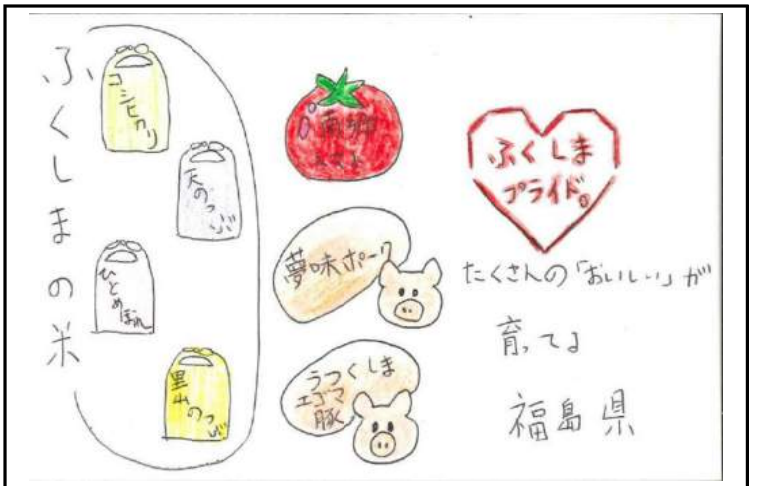 ふくしまの米
コシヒカリ
天のつぶ
ひとめぼれ
里山のつぶ
南郷
トマト
夢味ポーク
うつくしま
エゴマ
豚
ふくしま
プライド。
たくさんの「おいしい」が
育ってる
福島県